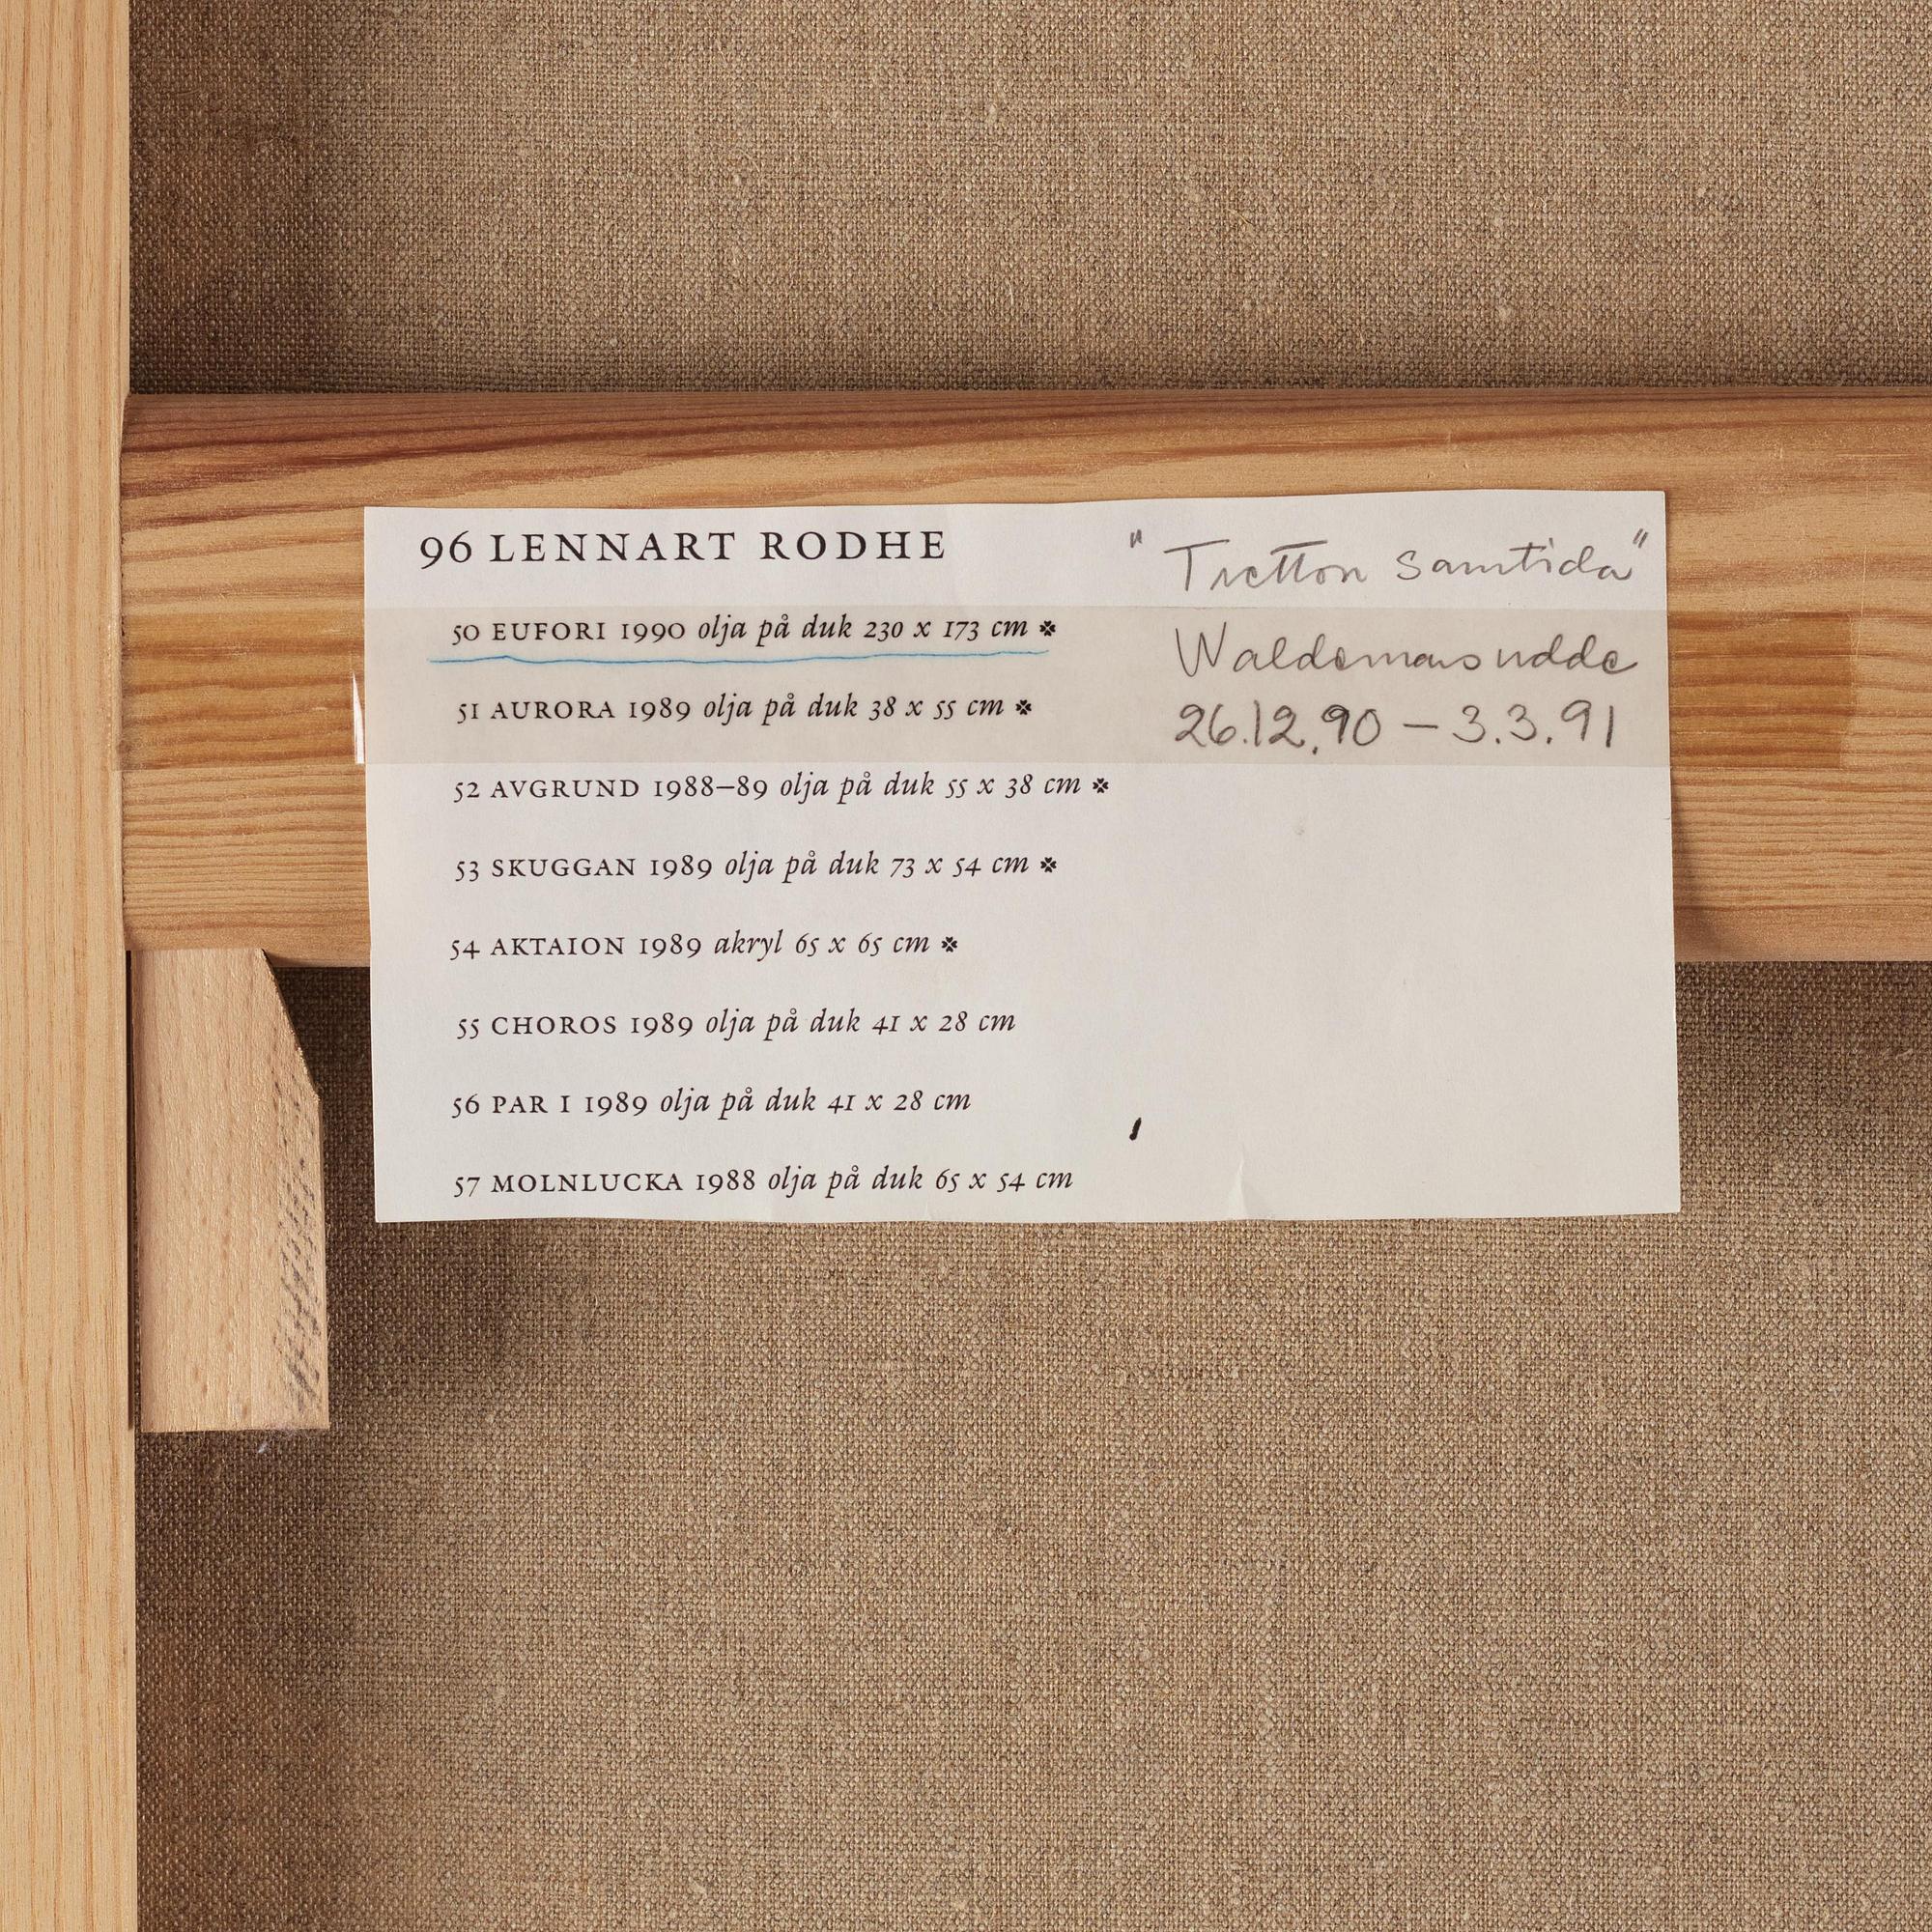 96 LENNART RODHE
"Tretton samtida"
50 EUFORI 1990 olja på duk 230 x 173 cm ✽
Waldemarsudde
51 AURORA 1989 olja på duk 38 x 55 cm ✽
26.12.90 – 3.3.91
52 AVGRUND 1988–89 olja på duk 55 x 38 cm ✽
53 SKUGGAN 1989 olja på duk 73 x 54 cm ✽
54 AKTAION 1989 akryl 65 x 65 cm ✽
55 CHOROS 1989 olja på duk 41 x 28 cm
56 PAR I 1989 olja på duk 41 x 28 cm
57 MOLNLUCKA 1988 olja på duk 65 x 54 cm